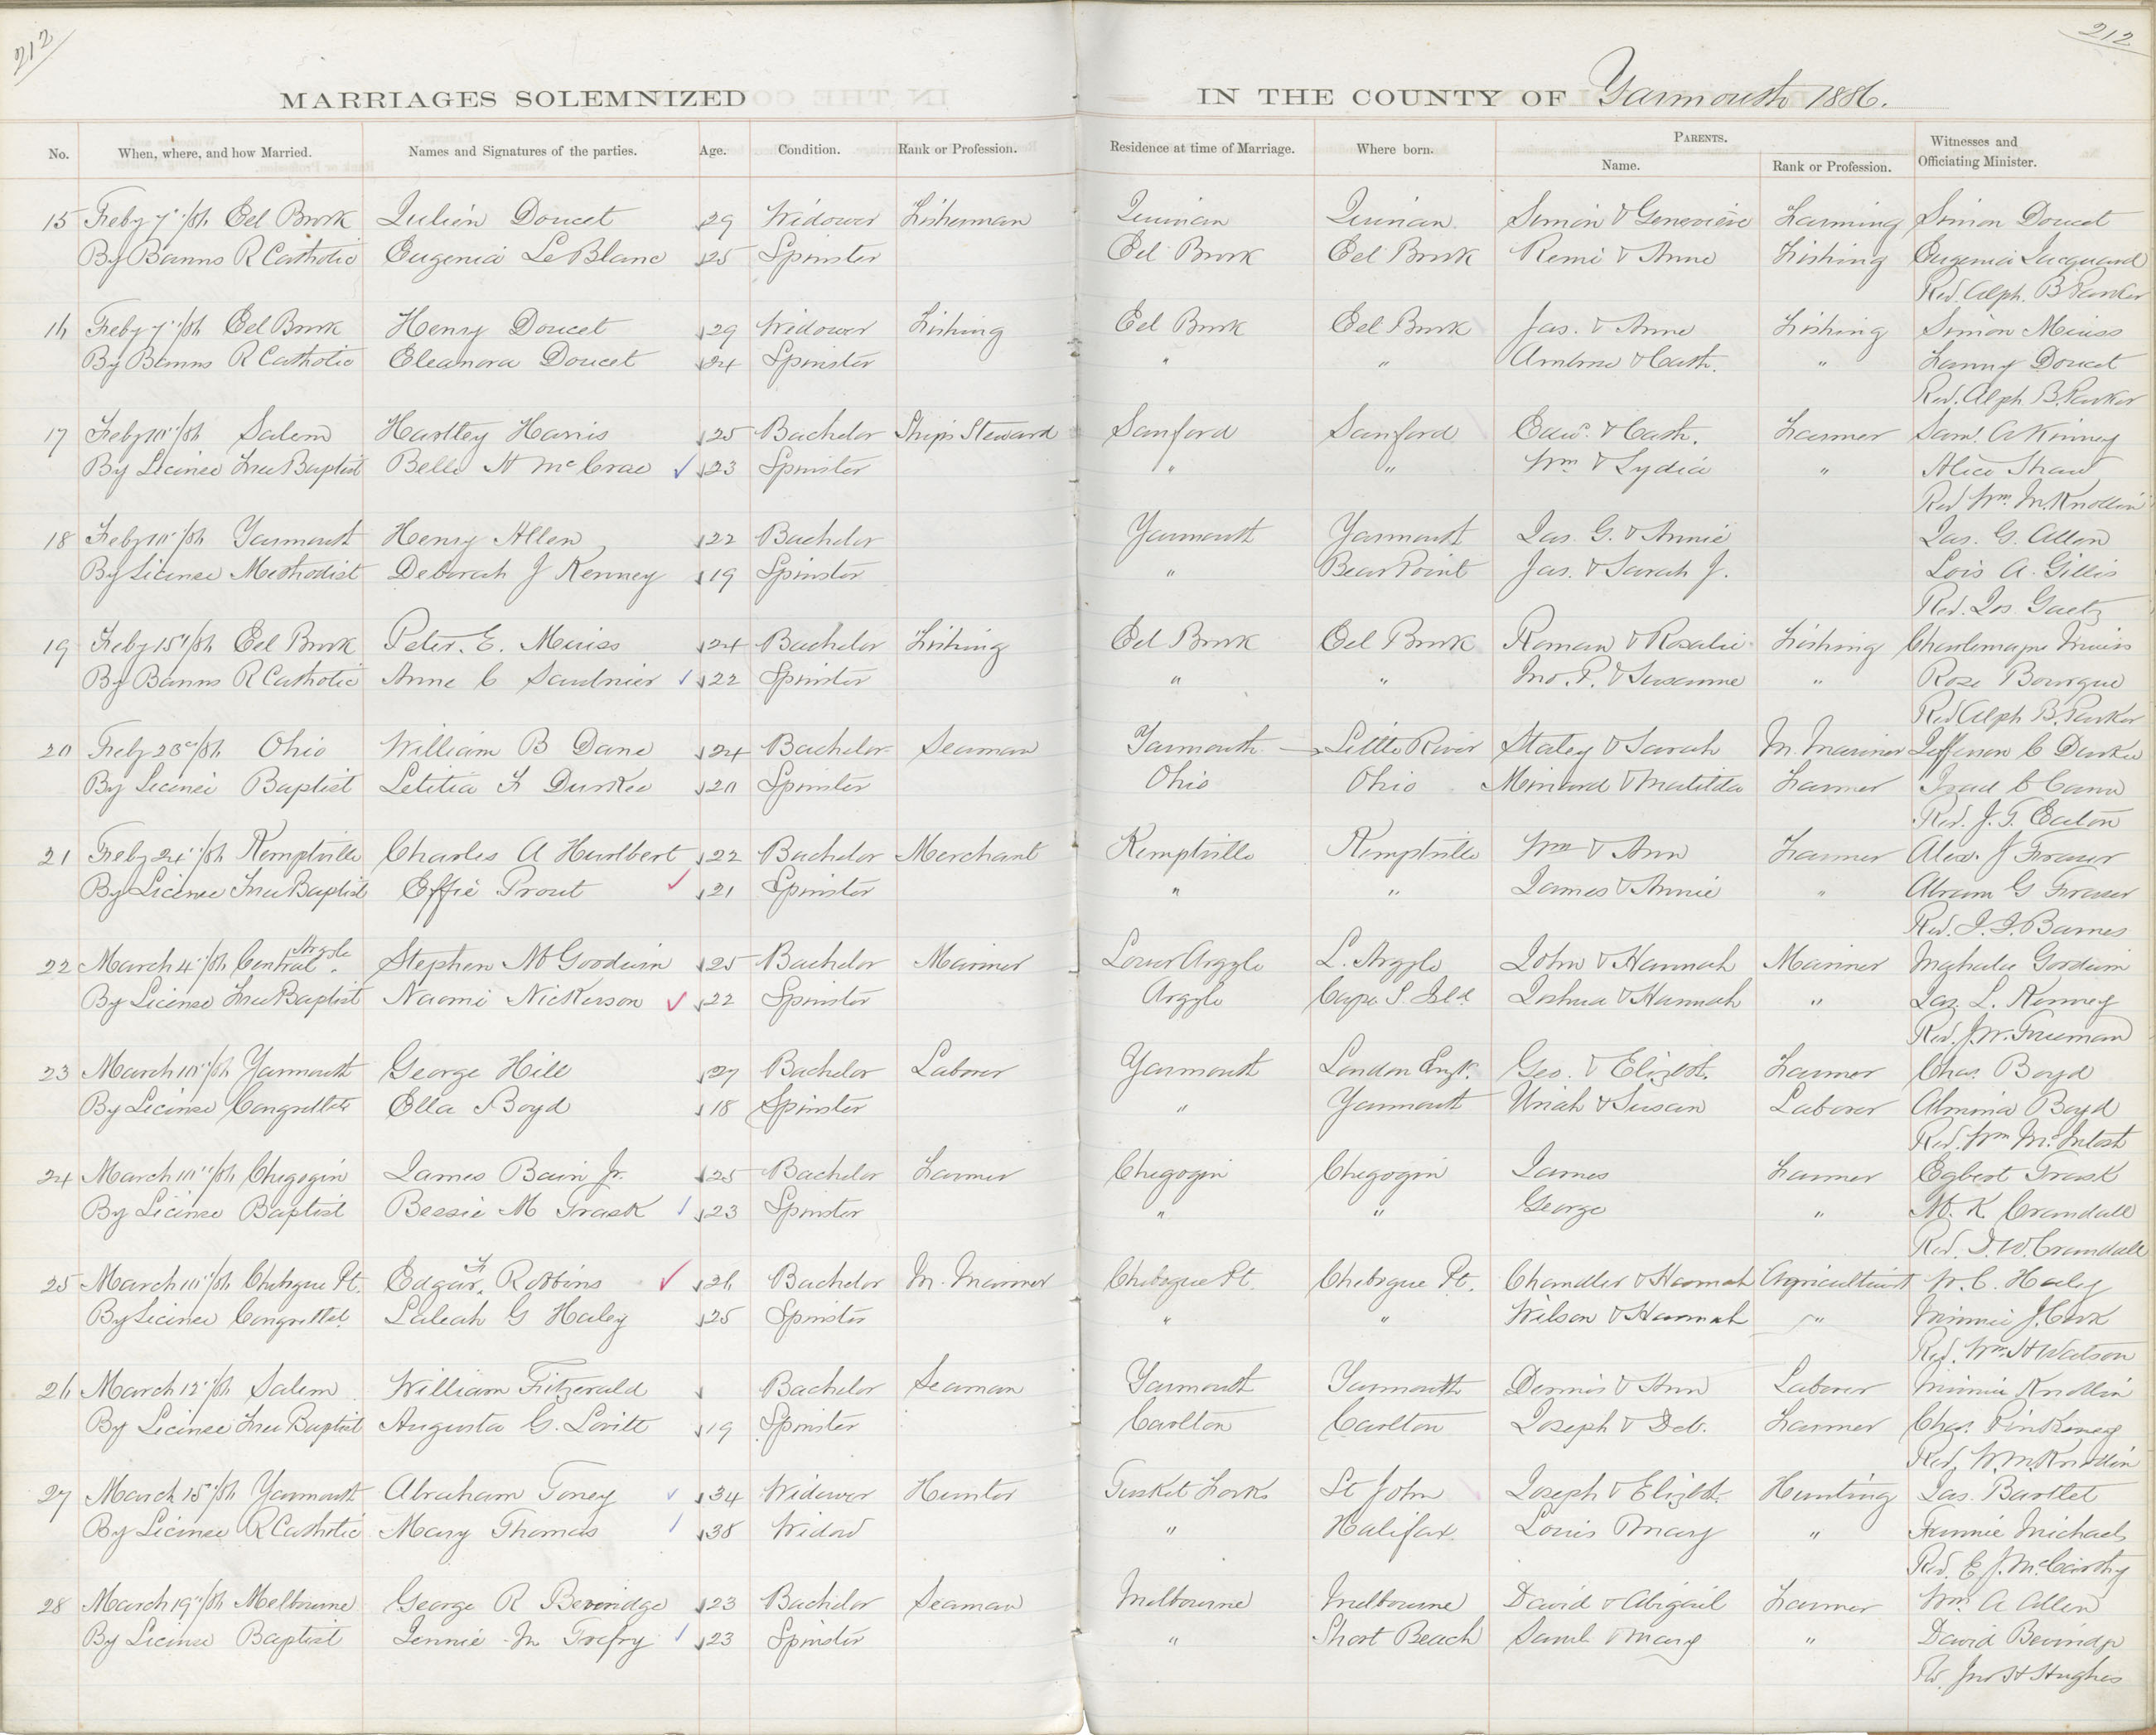 212
212
MARRIAGES SOLEMNIZED IN THE COUNTY OF Yarmouth 1886.
No. When, where, and how Married. Names and Signatures of the parties. Age. Condition. Rank or Profession. Residence at time of Marriage. Where born. PARENTS. Name. Rank or Profession. Witnesses and Officiating Minister.
15 Feby 7"/86 Eel Brook Julien Doucet 29 Widower Fisherman Quinian Quinian Simon & Genevieve Farming Simon Doucet
By Banns R Catholic Eugenia LeBlanc 25 Spinster Eel Brook Eel Brook Remi & Anne Fishing Eugenia Jacquard
Rev. Alph. B Parker
16 Feby 7"/86 Eel Brook Henry Doucet 29 Widower Fishing Eel Brook Eel Brook Jas. & Anne Fishing Simon Muiss
By Banns R Catholic Eleanora Doucet 24 Spinster " " Ambrose & Cath. " Fanny Doucet
Rev. Alph B. Parker
17 Feby 10"/86 Salem Hartley Harris 25 Bachelor Ship's Steward Sanford Sanford Edw. & Cath. Farmer Saml. A Kinney
By License Free Baptist Belle H McCrae 23 Spinster " " Wm & Lydia " Alice Shaw
Rev Wm. M. Knollin
18 Feby 10"/86 Yarmouth Henry Allen 22 Bachelor Yarmouth Yarmouth Jas. G. & Annie Jas. G. Allen
By License Methodist Deborah J Kenney 19 Spinster " Bear Point Jas. & Sarah J. Lois A. Gillis
Rev. Jos. Gaetz
19 Feby 15"/86 Eel Brook Peter. E. Muiss 24 Bachelor Fishing Eel Brook Eel Brook Roman & Rosalie Fishing Charlemagne Muiss
By Banns R Catholic Anne C Saulnier 22 Spinster " " Jno. P. & Susanne " Rose Bourque
Rev Alph B. Parker
20 Feby 23"/86 Ohio William B Dane 24 Bachelor Seaman Yarmouth Little River Staley & Sarah M. Mariner Jefferson C Durkee
By License Baptist Letitia F Durkee 20 Spinster Ohio Ohio Minard & Matilda Farmer C Cann
Rev. J. T. Eaton
21 Feby 24"/86 Kemptville Charles A Hurlbert 22 Bachelor Merchant Kemptville Kemptville Wm & Ann Farmer Alex. J Fraser
By License Free Baptist Effie Prout 21 Spinster " " James & Annie " Abram G Fraser
Rev. T. I. Barnes
22 March 4"/86 Central Argyle Stephen M Goodwin 25 Bachelor Mariner Lower Argyle L. Argyle John & Hannah Mariner Mahala Gordwin
By License Free Baptist Naomi Nickerson 22 Spinster Argyle Cape S. Isld. Joshua & Hannah " Jas. L. Kenney
Rev. J. W. Freeman
23 March 10"/86 Yarmouth George Hill 27 Bachelor Laborer Yarmouth London Eng. Geo. & Elizbt. Farmer Chas. Boyd
By License Ella Boyd 18 Spinster " Yarmouth Uriah & Susan Laborer Almina Boyd
Rev. Wm McIntosh
24 March 10"/86 Chegogin James Bain Jr. 25 Bachelor Farmer Chegogin Chegogin James Farmer Egbert Trask
By License Baptist Bessie M Trask 23 Spinster " " George " M. K. Crandall
Rev. D. W. Crandall
25 March 10"/86 Chebogue Pt. Edgar F Robbins 26 Bachelor M. Mariner Chebogue Pt. Chebogue Pt. Chandler & Hannah Agriculturist W. C. Haley
By License Laleah G Haley 25 Spinster " " Wilson & Hannah " Minnie J. Cook
Rev. Wm. H Watson
26 March 12"/86 Salem William Fitzerald Bachelor Seaman Yarmouth Yarmouth Dennis & Ann Laborer Minnie Knollin
By License Free Baptist Augusta G. Lovitt 19 Spinster Carlton Carlton Joseph & Deb. Farmer Chas. Pinkney
Rev. W. M. Knollin
27 March 15"/86 Yarmouth Abraham Toney 34 Widower Hunter Tusket Forks St John Joseph & Elizbt. Hunting Jas. Bartlet
By License R Catholic Mary Thomas 38 Widow " Halifax Louis & Mary " Fannie Michael
Rev. E. J. McCarthy
28 March 19"/86 Melbourne George R Beveridge 23 Bachelor Seaman Melbourne Melbourne David & Abigail Farmer Wm. A Allen
By License Baptist Jennie M Trefry 23 Spinster " Short Beach Saml. & Mary " David Beveridge
Rev. Jno H Hughes